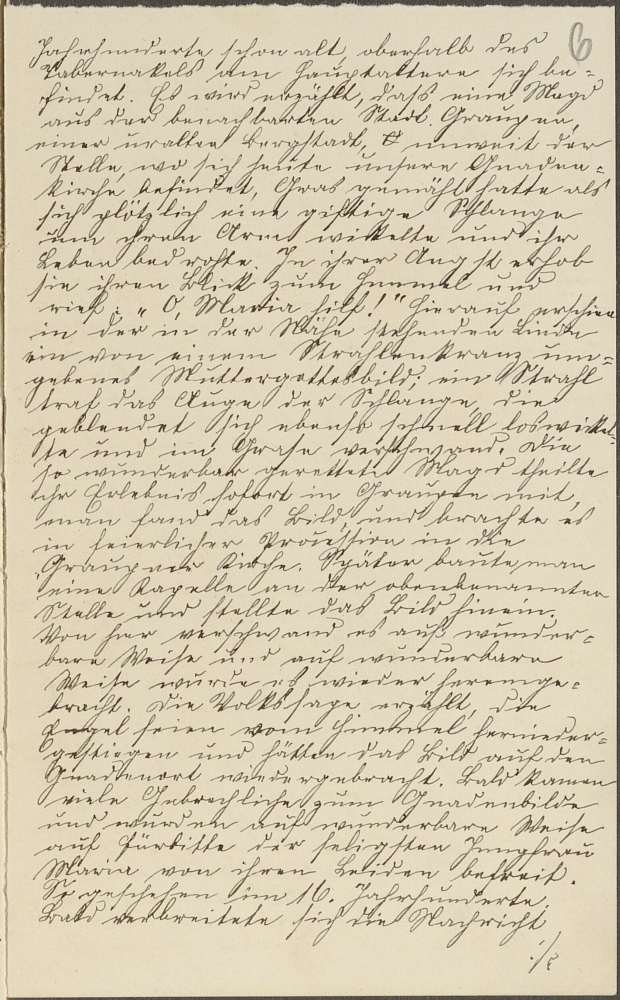 6
Jahrhunderte schon alt, oberhalb des
Tabernakels am Hauptaltare sich be=
findet. Es wird erzählt, dass eine Magd
aus der benachbarten Stadt Graupen,
einer uralten Bergstadt, unweit der
Stelle, wo sich heute unsere Gnaden=
kirche befindet, Gras gemäht hatte als
sich plötzlich eine giftige Schlange
um ihren Arm wickelte und ihr
Leben bedrohte. In ihrer Angst erhob
sie ihren Blick zum Himmel und
rief: „O, Maria hilf!" Hierauf erschien
in der in der Nähe stehenden Linde
ein von einem Strahlenkranz um=
gebenes Muttergottesbild; ein Strahl
traf das Auge der Schlange, die
geblendet sich ebenso schnell loswickel=
te und im Grase verschwand. Die
so wunderbar gerettete Magd theilte
ihr Erlebnis sofort in Graupen mit,
man fand das Bild, und brachte es
in feierlicher Procession in die
Graupner Kirche. Später baute man
eine Kapelle an der obenbenannten
Stelle und stellte das Bild hinein.
Von hier verschwand es auf wunder=
bare Weise und auf wunderbare
Weise wurde es wieder hereinge=
bracht. Die Volkssage erzählt, die
Engel seien vom Himmel hernieder=
gestiegen und hätten das Bild auf den
Gnadenort wiedergebracht. Bald kamen
viele Gebrechliche zum Gnadenbilde
und wurden auf wunderbare Weise
auf Fürbitte der seligsten Jungfrau
Maria von ihren Leiden befreit.
So geschehen im 16. Jahrhunderte.
Bald verbreitete sich die Nachricht
./.